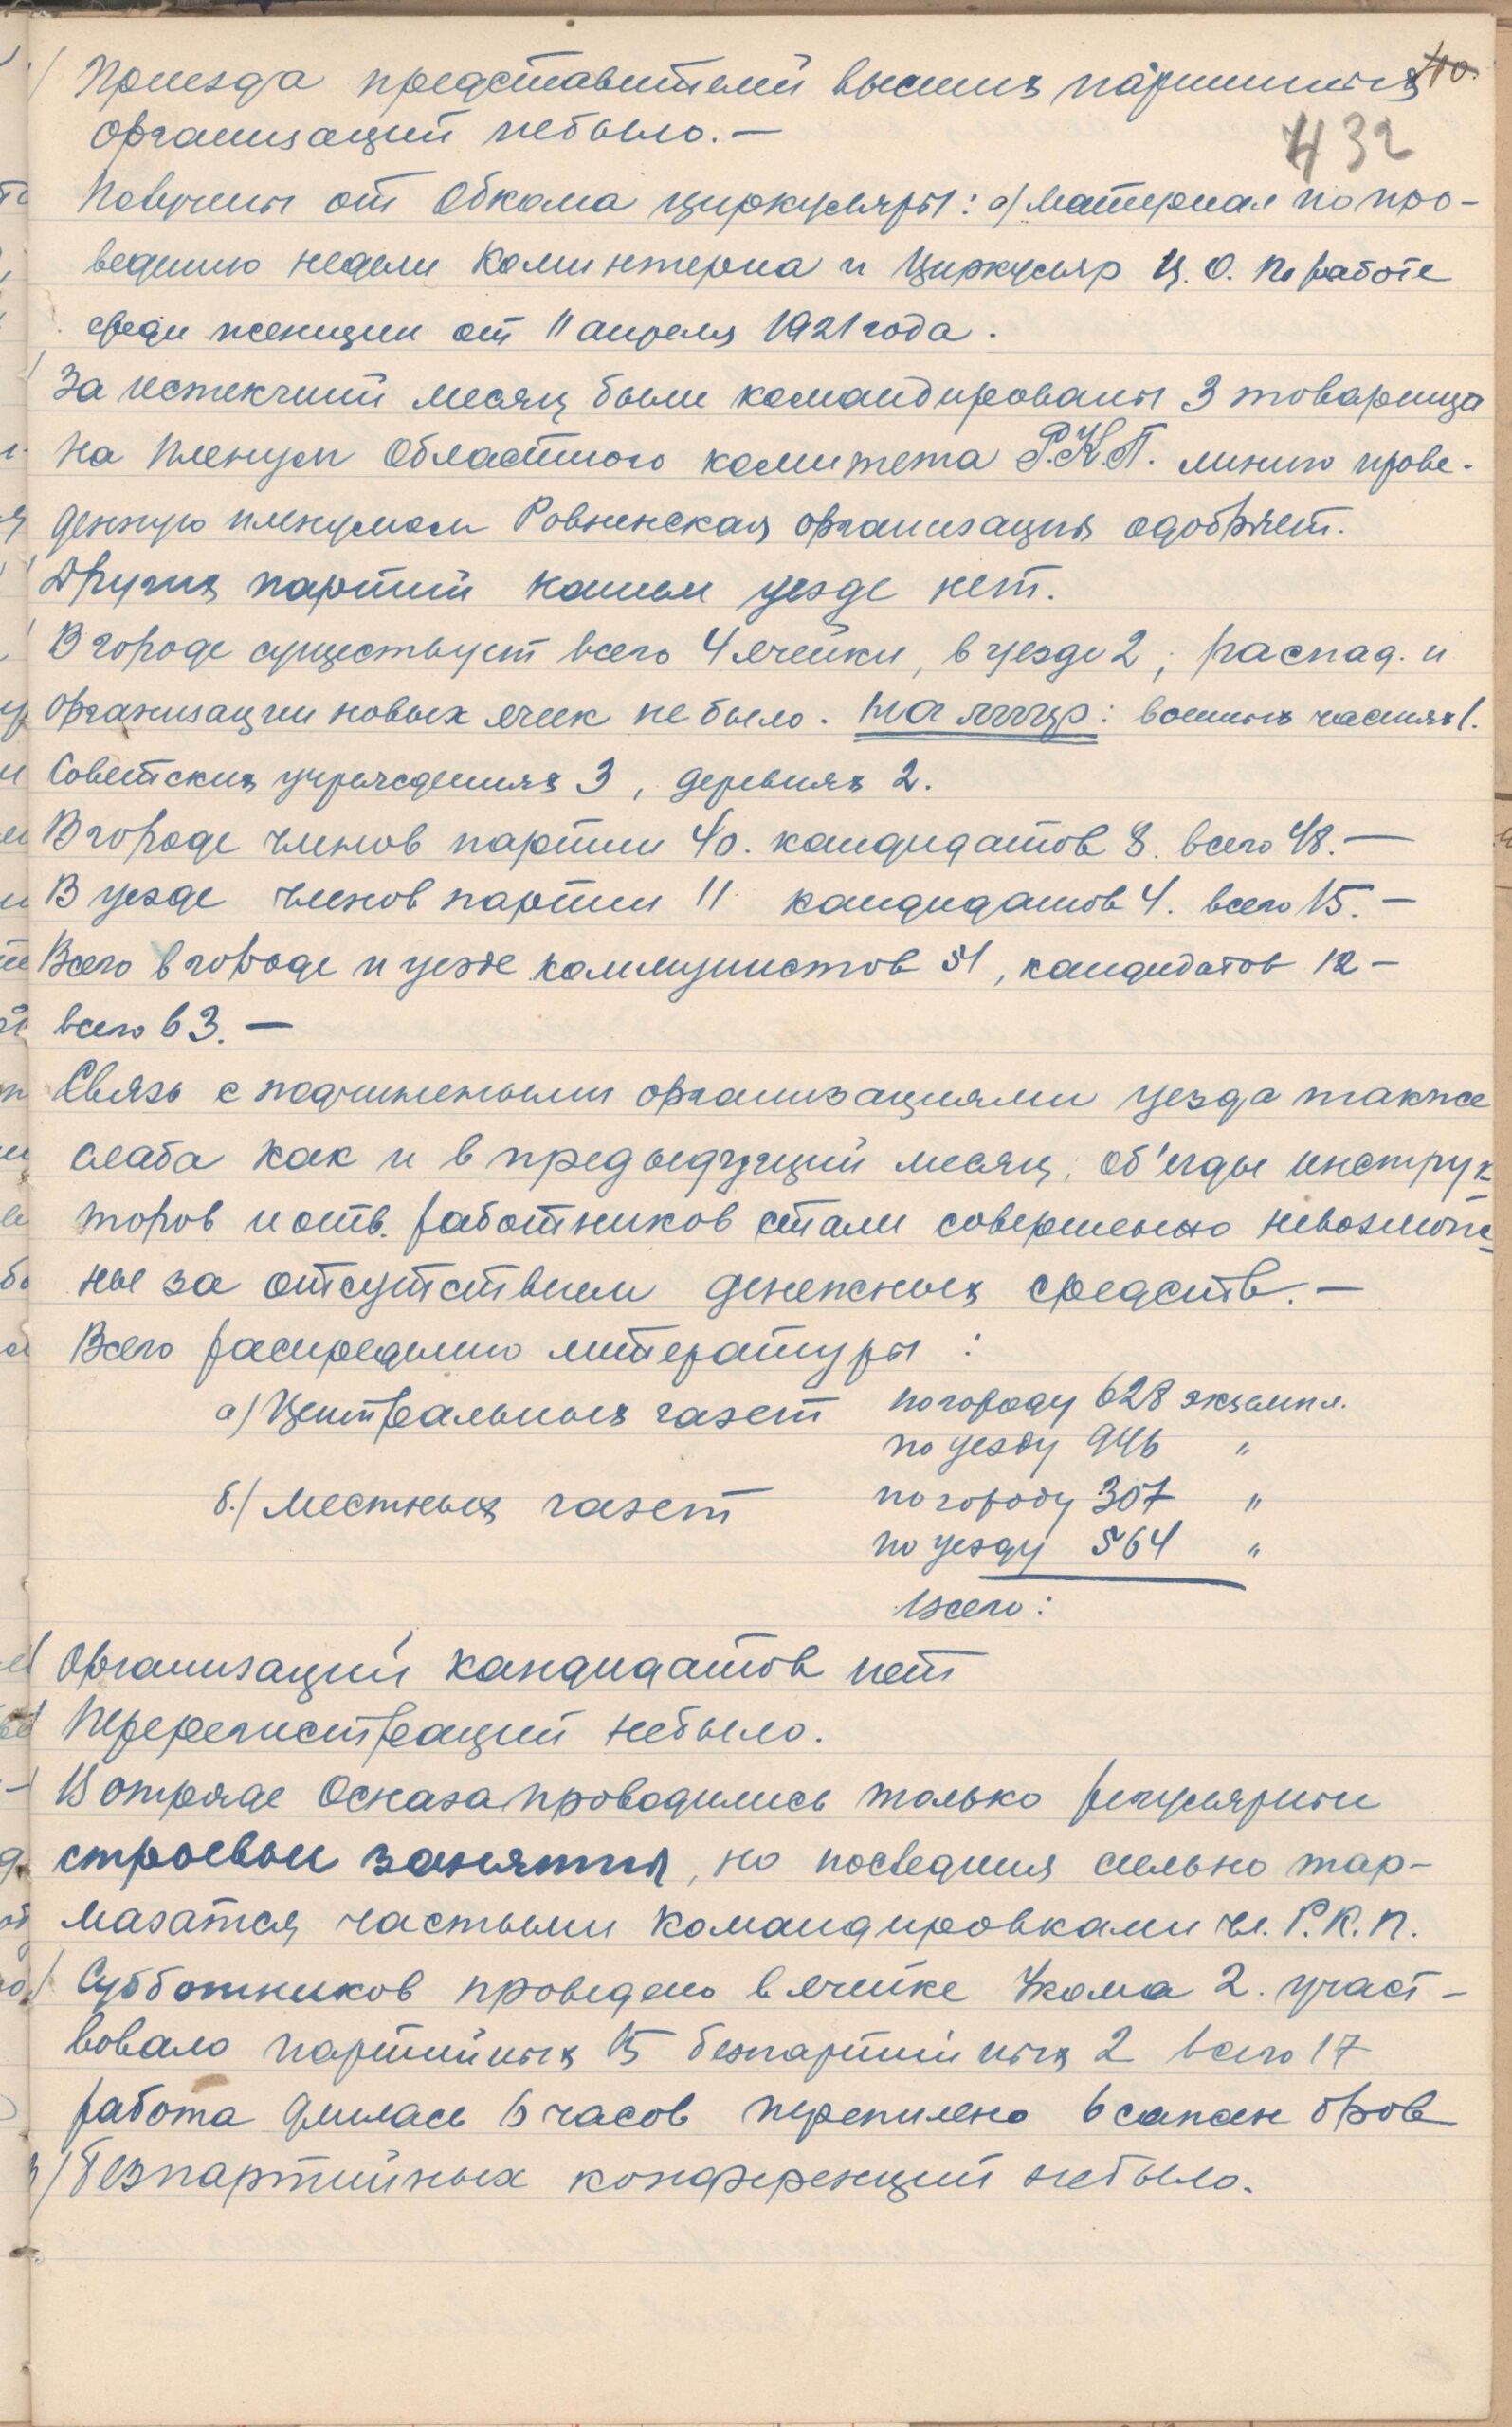 Приезда представителей высших партийных 110.
организаций небыло. —
432
Получины от Обкома циркуляры: а) материал по про-
ведению недели Коминтерна и Циркуляр Ц. О. По работе
среди женщин от 11 апреля 1921 года.
За истекчий месяц были командированы 3 товарища
на Пленум Областного комитета Р.К.П. линию прове-
денную пленумом Ровненская организация одобряет.
Других партий нашем уезде нет.
В городе существует всего 4 ячейки, в уезде 2; распад. и
организации новых ячеек не было. военных частях 1.
Советских учреждениях 3, деревнях 2.
В городе членов партии 40. кандидатов 8. всего 48. —
В уезде членов партии 11 кандидатов 4. всего 15. —
Всего в городе и уезде коммунистов 51, кандидатов 12 —
всего 63. —
Связь с подчиненными организациями уезда также
слаба как и в предыдущий месяц, об'езды инструк-
торов и отв. работников стали совершенно невозмож-
ные за отсутствием денежных средств. —
Всего распредилино литературы:
а) Центральных газет по городу 628 экземпл.
по уезду 946 "
б.) Местных газет по городу 307 "
по уезду 564 "
всего:
Организаций кандидатов нет
Перерегистраций небыло.
В отряде Осназа проводились только регулярныи
строевыи занятия, но последния сильно тар-
мазатся частыми командировками чл. Р.К.П.
Субботников проведено в ячейке Укома 2. участ-
вовало партийных 15 безпартийных 2 всего 17
работа длилась 6 часов перепилено 6 сажен дров
Безпартийных конференций небыло.